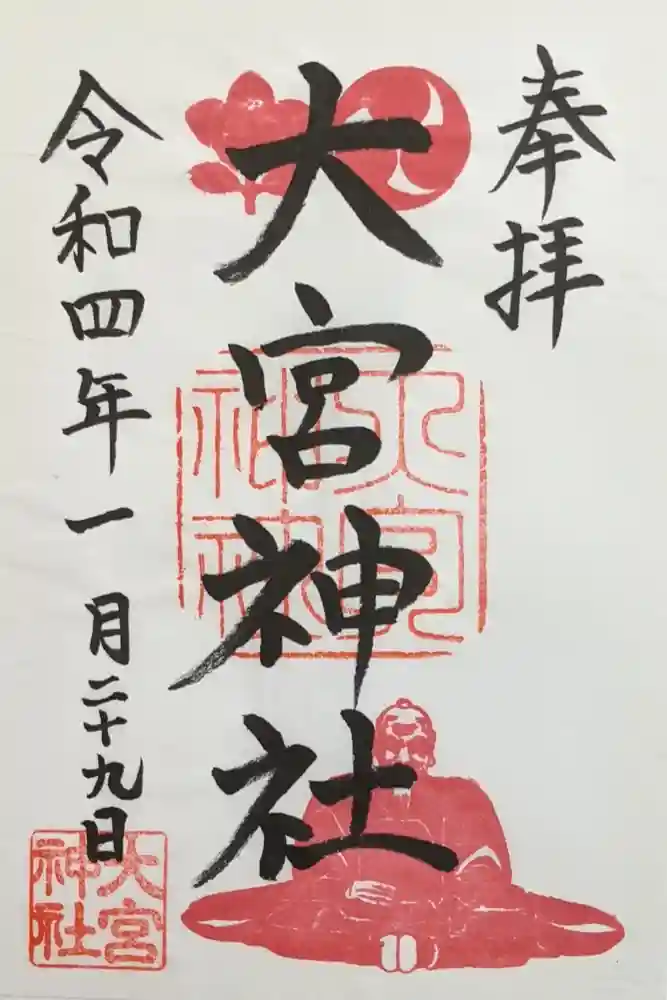 奉拝
大宮神社
大宮神社
令和四年一月二十九日
大宮神社